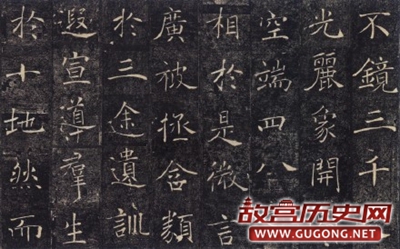 不鏡三千
光麗象開
空端四八
相於是微言
廣被拯含類
於三途遺訓
遐宣導羣生
於十地然而
故宫历史网
WWW.GUGONG.NET